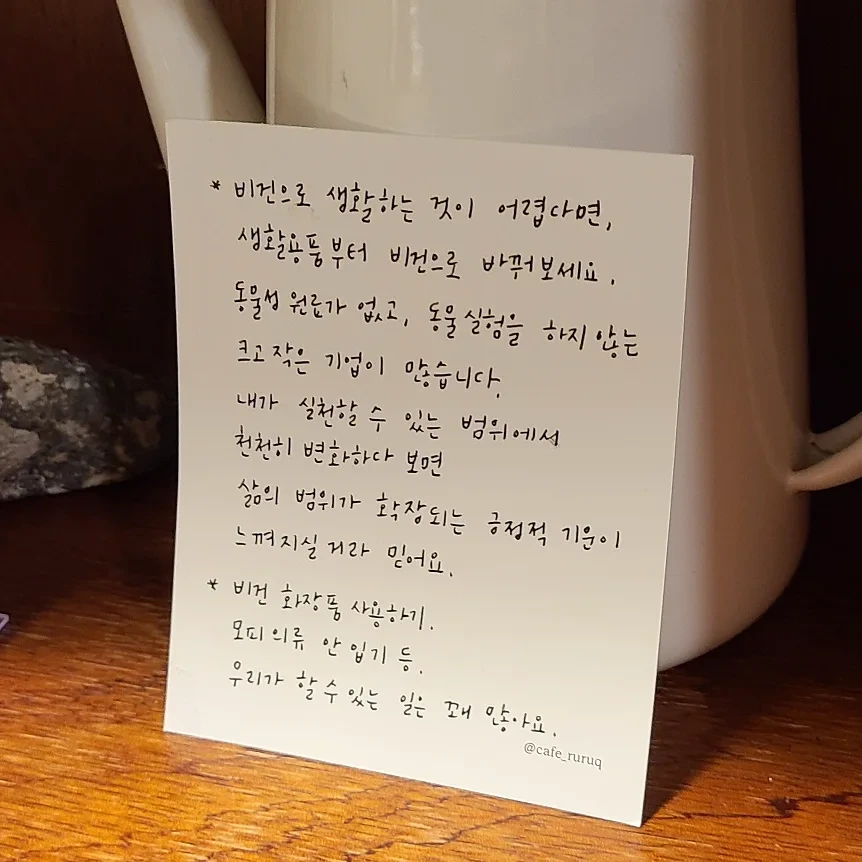 * 비건으로 생활하는 것이 어렵다면,
생활용품부터 비건으로 바꿔보세요.
동물성 원료가 없고, 동물실험을 하지 않는
크고 작은 기업이 많습니다.
내가 실천할 수 있는 범위에서
천천히 변화하다 보면
삶의 범위가 확장되는 긍정적 기운이
느껴지실 거라 믿어요.
* 비건 화장품 사용하기.
모피의류 안 입기 등.
우리가 할 수 있는 일은 꽤 많아요.
@cafe_ruruq